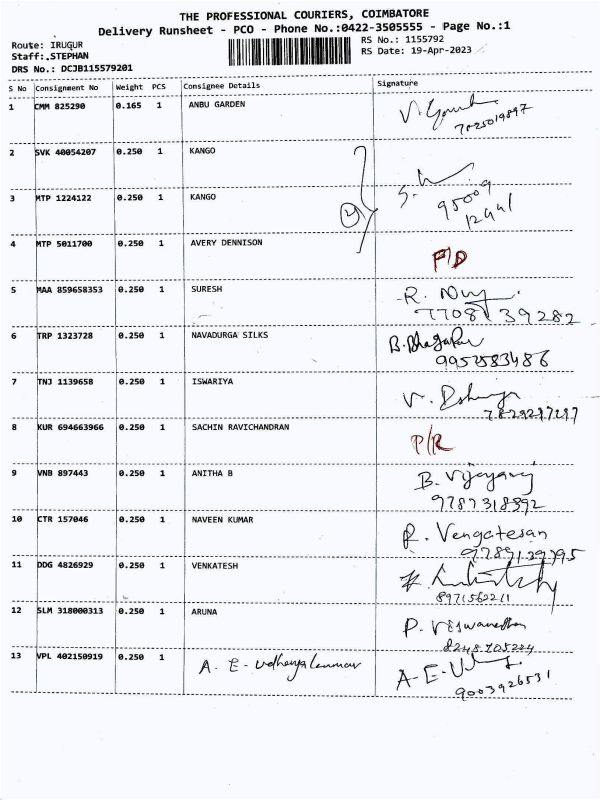 THE PROFESSIONAL COURIERS, COIMBATORE
Delivery Runsheet - PCO - Phone No.:0422-3505555 - Page No.:1
Route: IRUGUR
Staff:.STEPHAN
DRS No.: DCJB115579201
RS No.: 1155792
RS Date: 19-Apr-2023
S No Consignment No Weight PCS Consignee Details Signature
1 CMM 825290 0.165 1 ANBU GARDEN
7025019897
2 SVK 40054207 0.250 1 KANGO
3 MTP 1224122 0.250 1 KANGO
95009
12441
4 MTP 5011700 0.250 1 AVERY DENNISON F/D
5 MAA 859658353 0.250 1 SURESH
7708139282
6 TRP 1323728 0.250 1 NAVADURGA SILKS
9952583486
7 TNJ 1139658 0.250 1 ISWARIYA
8 KUR 694663966 0.250 1 SACHIN RAVICHANDRAN P/R
9 VNB 897443 0.250 1 ANITHA B B. Vijayaraj
9787318592
10 CTR 157046 0.250 1 NAVEEN KUMAR R. Vengatesan
9789129795
11 DDG 4826929 0.250 1 VENKATESH
8971562211
12 SLM 318000313 0.250 1 ARUNA P. Viswanathan
8248705224
13 VPL 402150919 0.250 1 A. E. Udhayakumar A-E-U
9003926531